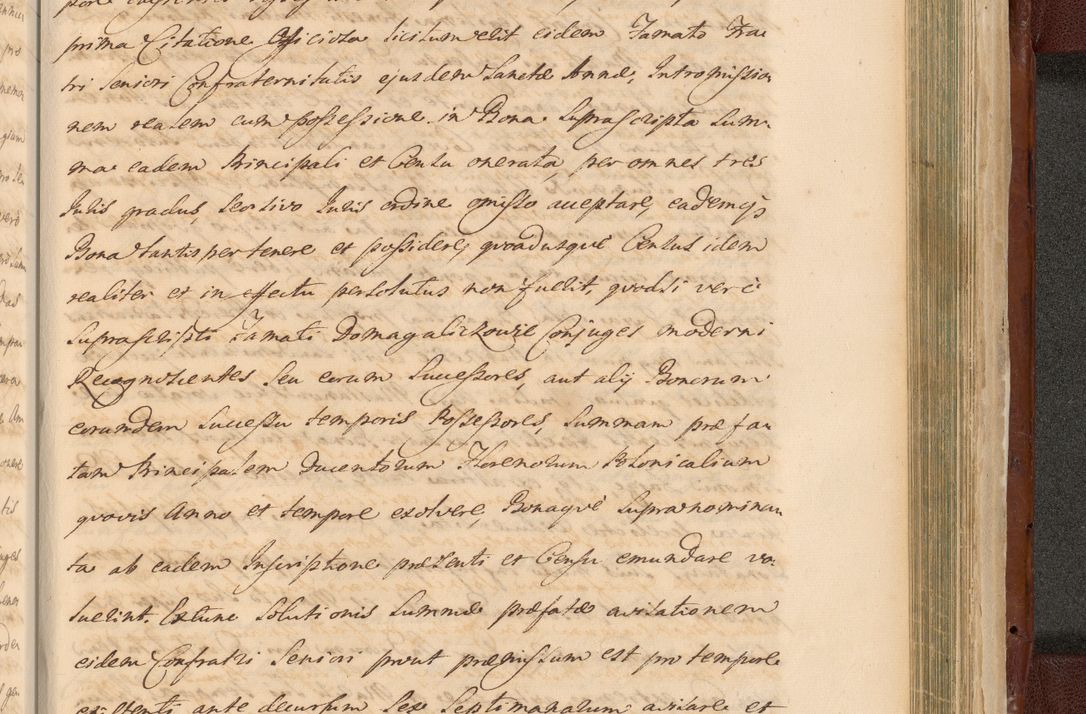 prima Citatione Officiosa licitum erit eidem Famato Fra-
tri Seniori Confraternitatis ejusdem Sanctæ Annæ, Intromission
nem realem cum possessione in Bona Suprascripta Sum-
ma eadem Principali et Censu onerata, per omnes tres
Juris gradus, seu sivo Juris ordine omisso acceptare, eademq3
Bona tantisper tenere et possidere, quoadusque Census idem
realiter et in effectu persolutus non fuerit, quodsi vero
Suprascripti Famati Domagaliczowie Conjuges moderni
Recognoscentes Seu eorum Successores, aut alij Bonorum
eorumdem Successu temporis Possessores, Summam præfa-
tam Principalem Ducentorum Florenorum Polonicalium
quovis Anno et tempore exolvere, Bonaque Supranominan
ta ab eadem Inscriptione præsenti et Censu emundare vo-
luerint. Extunc Solutionis Summæ præfatæ avisationem
eidem Confratri Seniori prout præmissum est pro tempore
existenti ante decursum Sex Septimanarum avisare et